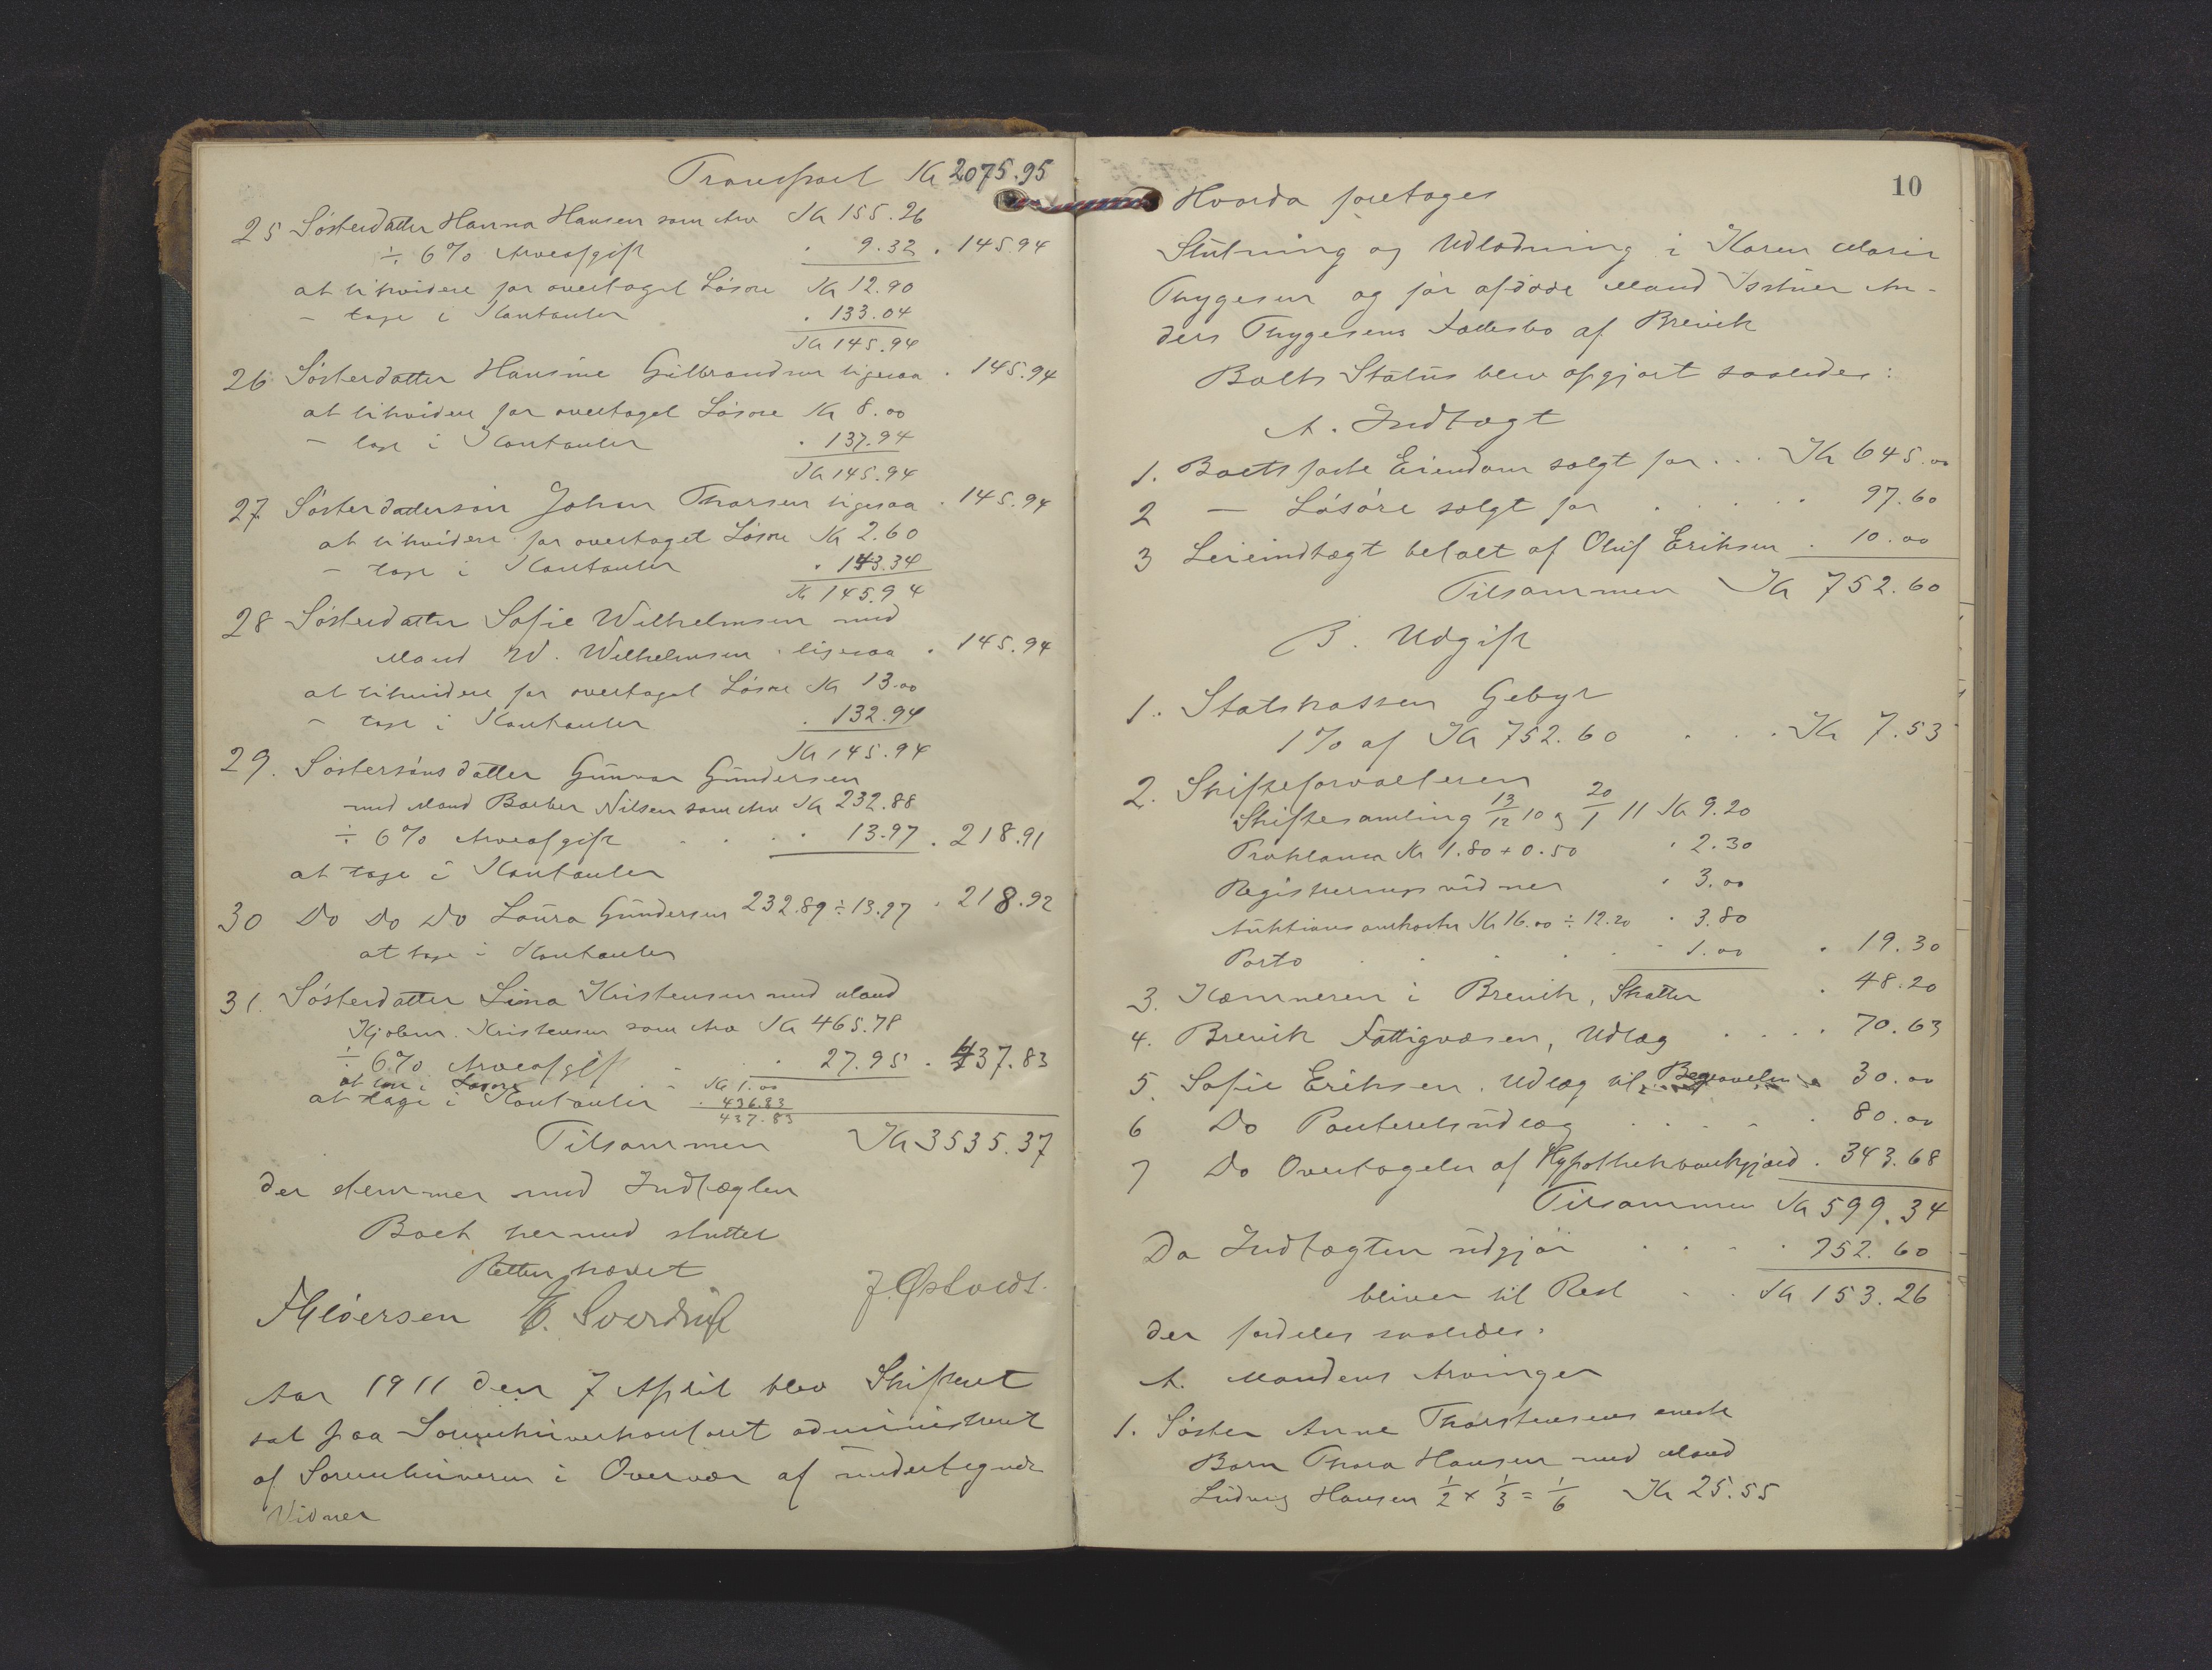 Transport Kr 2075.95
25 Søsterdatter Hanna Hansen som Arv Kr 155.26
÷ 6% Arveafgift . 9.32 . 145.94
at likvidere for overtaget Løsøre Kr 12.90
— tage i Kontanter . 133.04
Kr 145.94
26 Søsterdatter Hansine Gulbrandsen ligesaa . 145.94
at likvidere for overtaget Løsøre Kr 8.00
— tage i Kontanter . 137.94
Kr 145.94
27 Søsterdattersøn Johan Thorsen ligesaa . 145.94
at likvidere for overtaget Løsøre Kr 2.60
— tage i Kontanter . 143.34
Kr 145.94
28 Søsterdatter Sofie Wilhelmsen med
Mand W. Wilhelmsen ligesaa . 145.94
at likvidere for overtaget Løsøre Kr 13.00
— tage i Kontanter . 132.94
Kr 145.94
29. Søstersøns datter Gunvor Gundersen
med Mand Barber Nilsen som Arv Kr 232.88
÷ 6% Arveafgift . . . 13.97 . 218.91
at tage i Kontanter
30 Do Do Do Laura Gundersen 232.89 ÷ 13.97 . 218.92
at tage i Kontanter
31. Søsterdatter Lina Kristensen med Mand
Kjøbm. Kristensen som Arv Kr 465.78
÷ 6% Arveafgift . . 27.95 . 437.83
at tage i Løsøre . . Kr 1.00
at tage i Kontanter . 436.83
437.83
Tilsammen Kr 3535.37
der stemmer med Indtægten
Boet hermed sluttet
Retten hævet
E. Sverdrup J. Østvedt.
Aar 1911 den 7 April blev Skifteret
sat paa Sorenskriverkontoret administreret
af Sorenskriveren i Overvær af undertegnede
Vidner
10
Hvorda foretoges
Slutning og Udlodning i Karen Marie
Thygesen og før afdøde Mand An-
ders Thygesens Fællesbo af Brevik
Boets Status blev opgjort saaledes:
A. Indtægt
1. Boets faste Eiendom solgt for . . . Kr 645.00
2 — Løsøre solgt for . . . . 97.60
3 Leieindtægt betalt af Oluf Eriksen . 10.00
Tilsammen Kr 752.60
B. Udgift
1. Statskassen Gebyr
1% af Kr 752.60 . . . Kr 7.53
2. Skifteforvalteren
Skiftesamling 13/12 10 og 20/1 11 Kr 9.20
Proklama Kr 1.80 + 0.50 . 2.30
Registreringsvidner . 3.00
Auktionsomkostn Kr 16.00 ÷ 12.20 . 3.80
Porto . . . . . 1.00 . 19.30
3. Kæmneren i Brevik, Skatter . 48.20
4. Brevik Fattigvæsen, Udlæg . . . . 70.63
5. Sofie Eriksen. Udlæg til Begravelse . 30.00
6 Do Panteretsudlæg . . . . . 80.00
7 Do Overtagelse af Hypothekbankgjæld . 343.68
Tilsammen Kr 599.34
Da Indtægten udgjør . . . . 752.60
bliver til Rest . . Kr 153.26
der fordeles saaledes:
A. Mandens Arvinger
1. Søster Anne Thorstensens eneste
Barn Thora Hansen med Mand
Ludvig Hansen 1/2 × 1/3 = 1/6 Kr 25.55